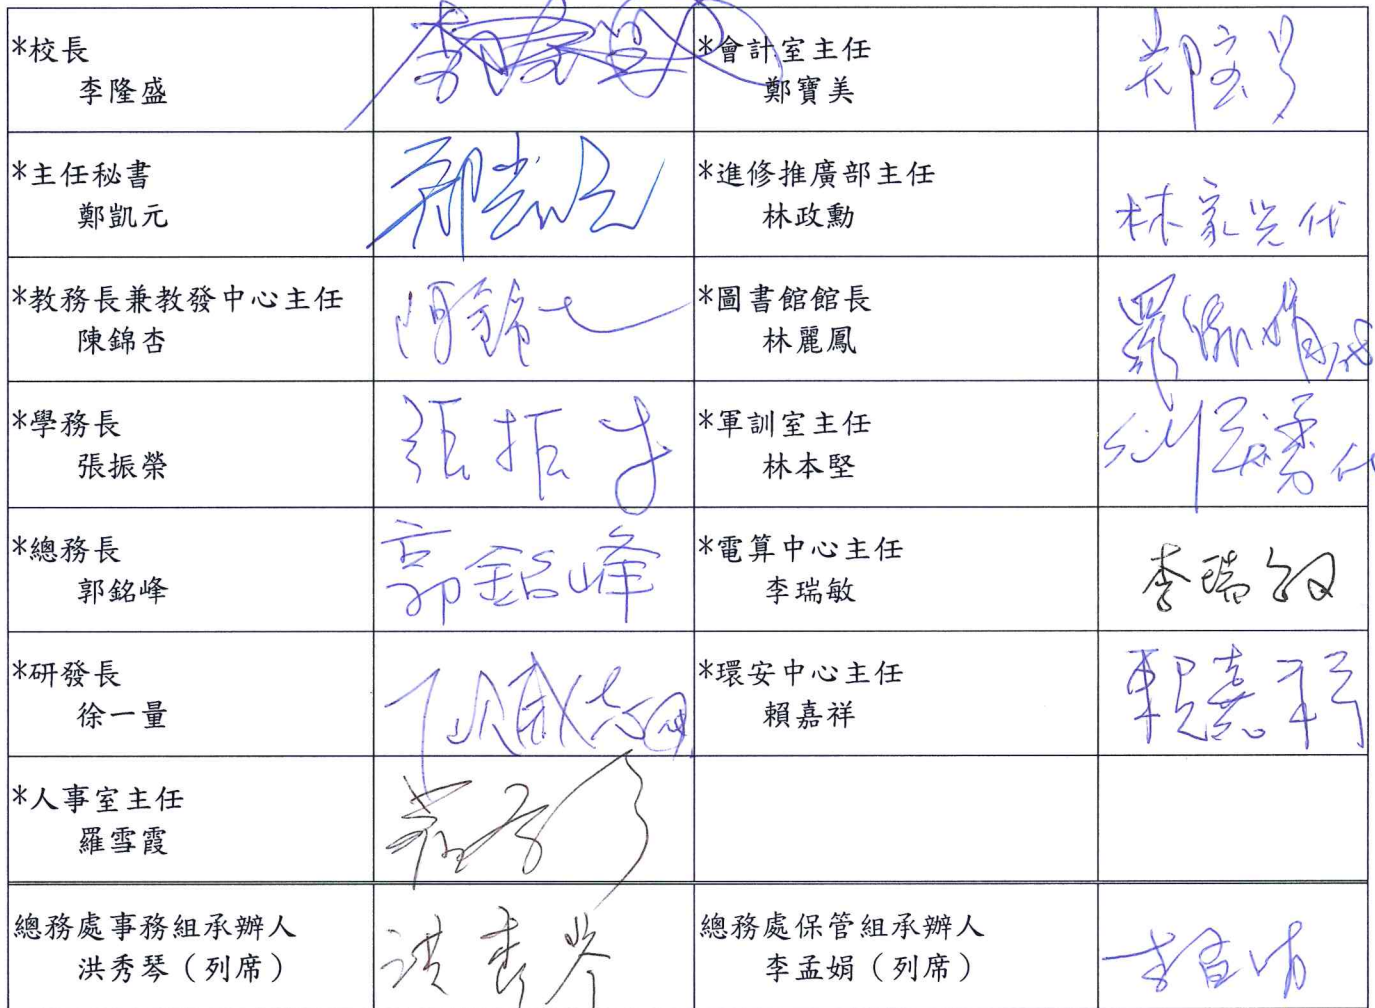 *校長
李隆盛
*會計室主任
鄭寶美
*主任秘書
鄭凱元
*進修推廣部主任
林政勳
林家光代
*教務長兼教發中心主任
陳錦杏
*圖書館館長
林麗鳳
*學務長
張振榮
張振
*軍訓室主任
林本堅
*總務長
郭銘峰
郭銘峰
*電算中心主任
李瑞敏
李瑞敏
*研發長
徐一量
*環安中心主任
賴嘉祥
賴嘉祥
*人事室主任
羅雪霞
總務處事務組承辦人
洪秀琴(列席)
洪秀琴
總務處保管組承辦人
李孟娟(列席)